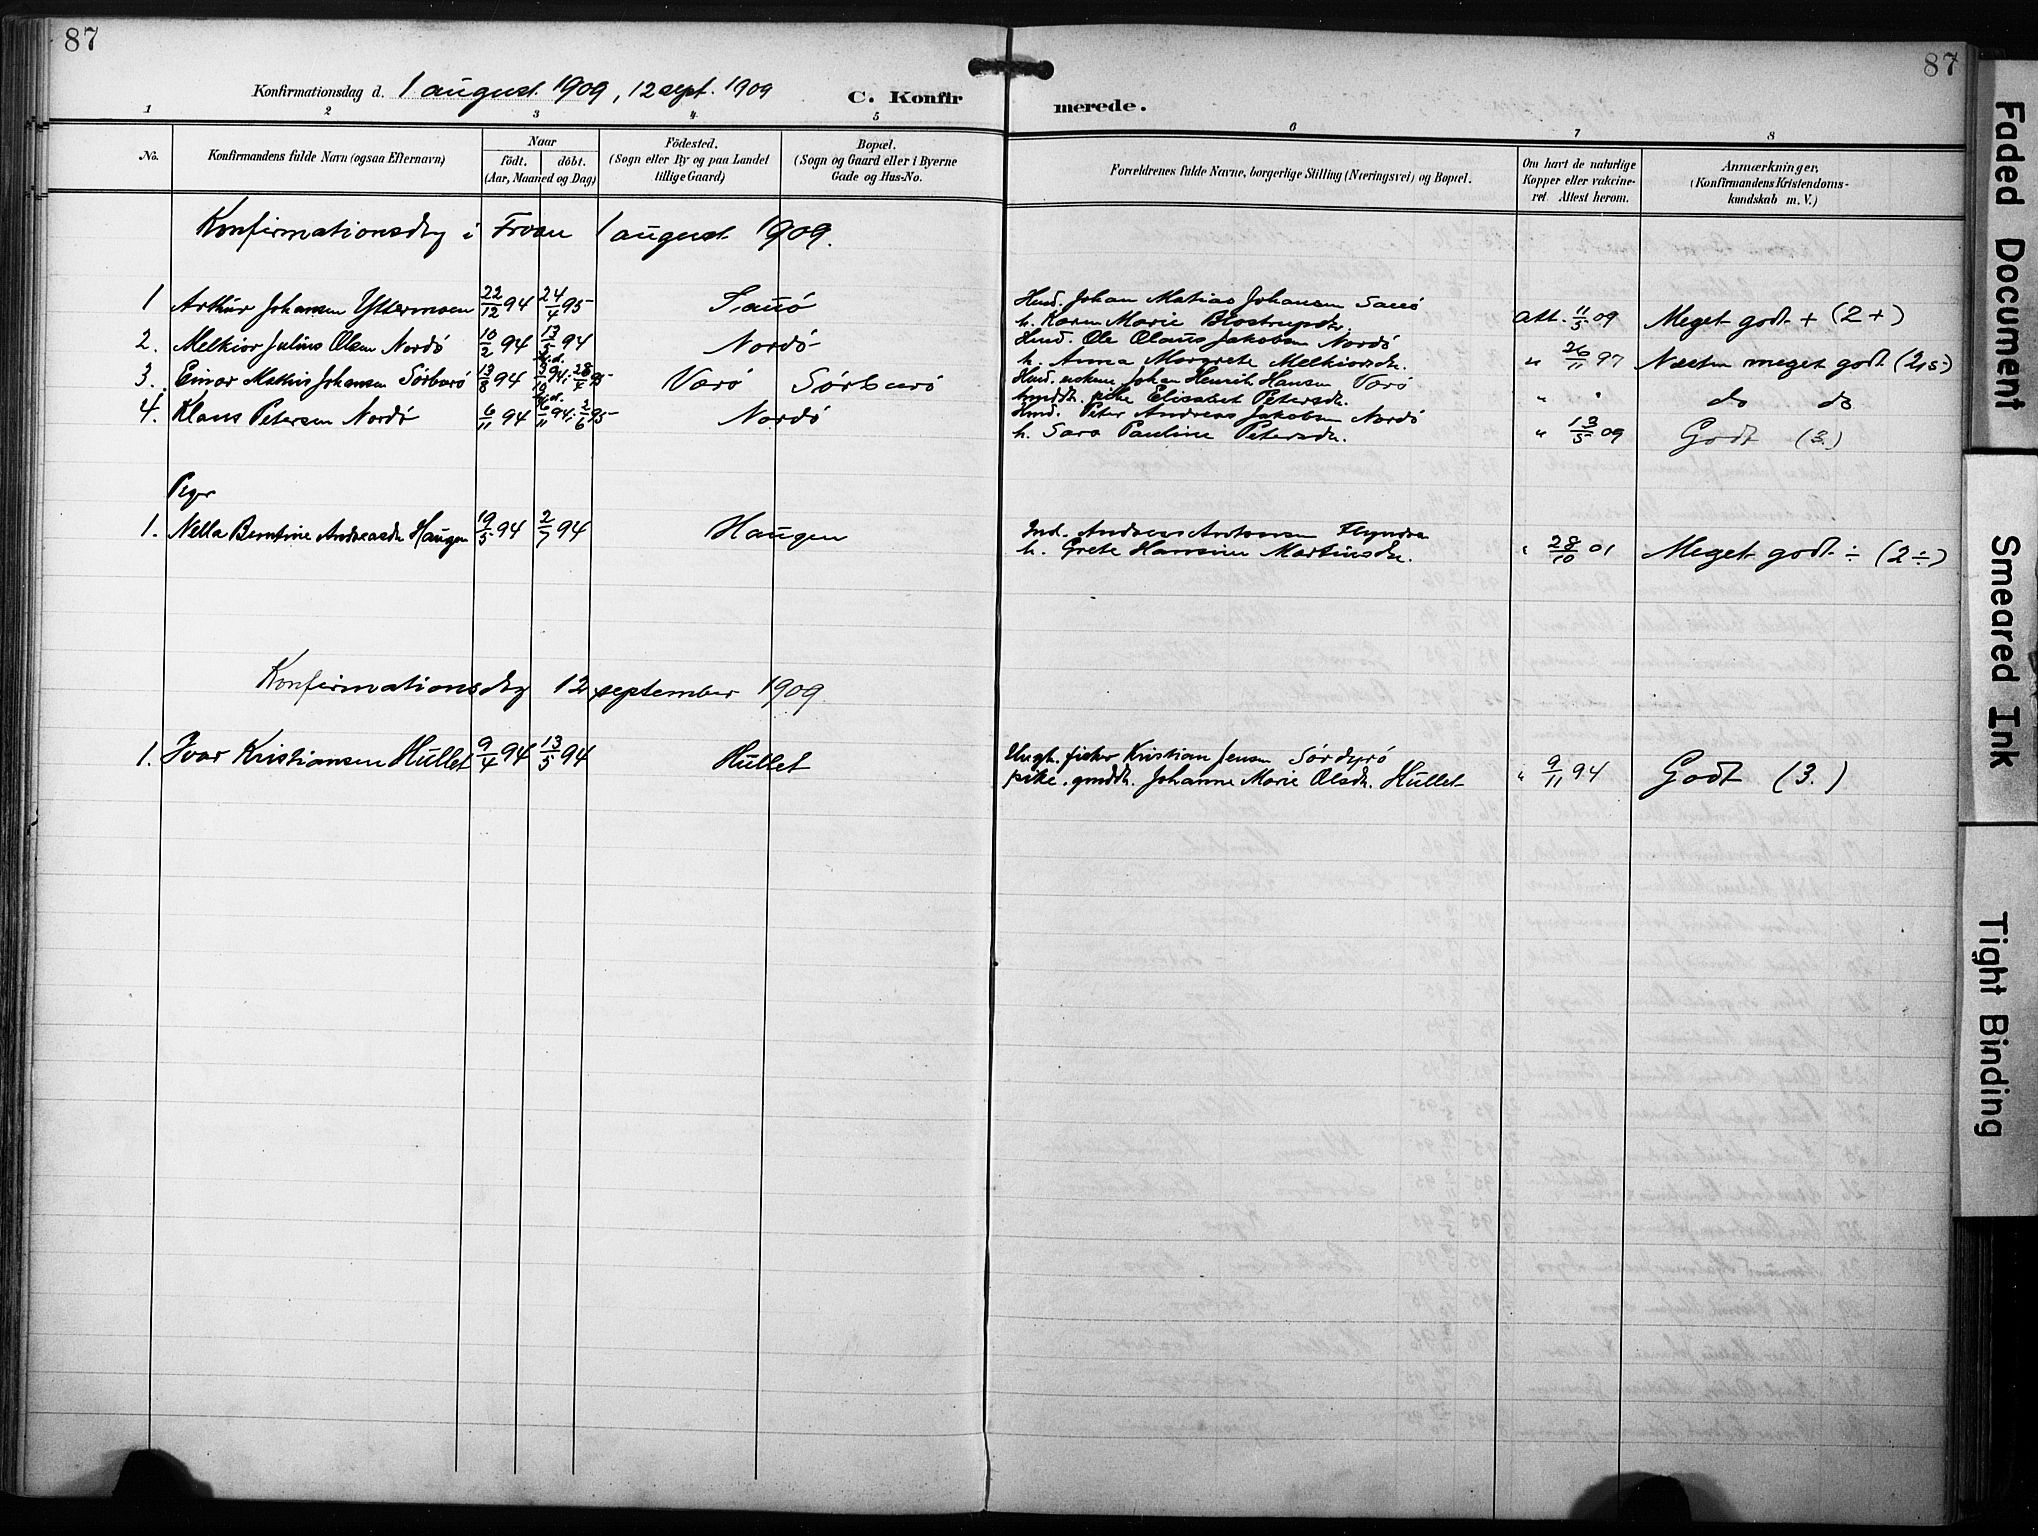 87
87
Konfirmationsdag d. 1 august 1909, 12 sept. 1909
C. Konfirmerede.
1 2 3 4 5 6 7 8
No.
Konfirmandens fulde Navn (ogsaa Efternavn)
Naar
födt. döbt.
(Aar, Maaned og Dag)
Födested.
(Sogn eller By og paa Landet
tillige Gaard)
Bopæl.
(Sogn og Gaard eller i Byerne
Gade og Hus-No.
Forældrenes fulde Navne, borgerlige Stilling (Næringsvei) og Bopæl.
Om havt de naturlige
Kopper eller vakcine-
ret Attest herom.
Anmærkninger,
(Konfirmandens Kristendoms-
kundskab m. V.)
Konfirmationsdag i Froan 1 august 1909.
1 Arthur Johansen Yttermoen 22/12 94 24/4 95 Sauö Husd. Johan Matias Johansen Sauö
h. Karen Marie Att. 11/5 09 Meget godt + (2+)
2. Melkior Julius Olsen Nordö 10/2 94 13/5 94 Nordö Husd. Ole Olaus Jakobsen Nordö
h. Anna Margrete Melkiorsdr. " 26/11 97 Næsten meget godt (2,5)
3. Einar Mathis Johansen Sörburö 13/8 94 Værö Sörburö Johan Henrik Hansen Værö
pike Elisabet Petersdr. " " do do
4. Klaus Petersen Nordö 6/11 94 Nordö Husd. Peter Andreas Jakobsen Nordö
h. Sara Pauline Petersdr. " 13/5 09 Godt (3.)
Piger
1. Nella Berntine Andreasdr. Haugen 19/5 94 2/7 94 Haugen Ind. Andreas Antonsen Flyndra
h. Grete Hansine Martinsdr. " 28/10 01 Meget godt ÷ (2÷)
Konfirmationsdag 12 september 1909.
1. Ivar Kristiansen Hullet 9/4 94 13/5 94 Hullet Ungk. fisker Kristian Jensen Sördyrö
pike. gmddtr. Johanne Marie Olsdr. Hullet " 9/11 94 Godt (3.)
Faded Document
Smeared Ink
Tight Binding